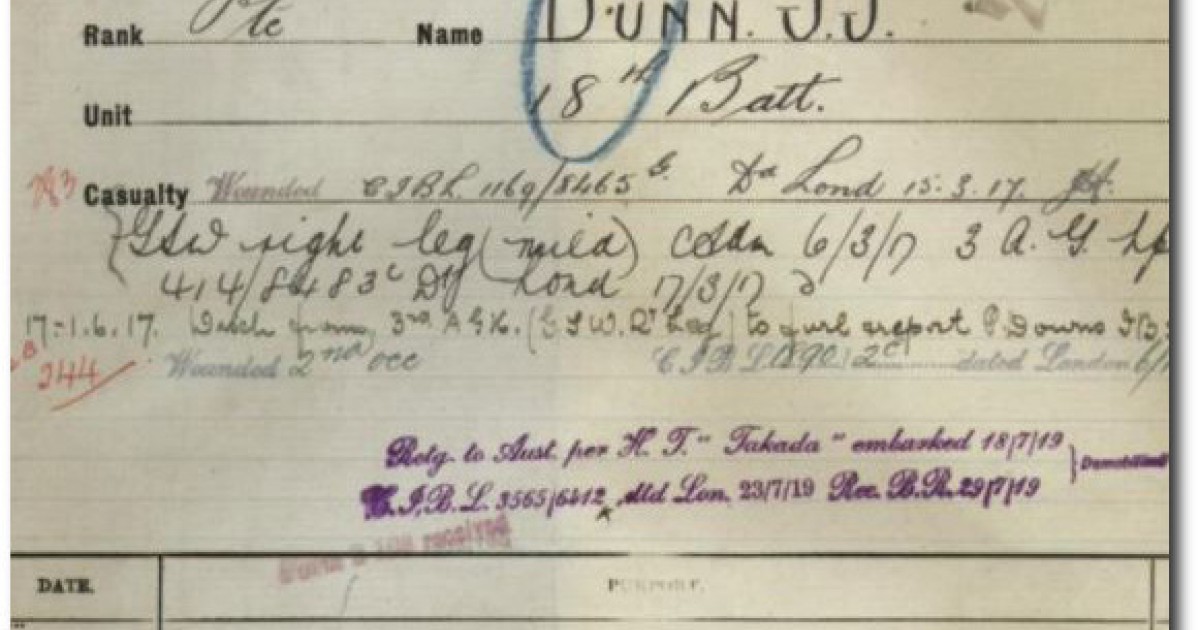 Rank Pte Name DUNN. J.J.
Unit 18th Batt.
Casualty Wounded C I B L 1169/8465 Dd Lond 15.3.17.
GSW right leg (mild) adm 6/3/17 3 A. G. Hp
414/8483 Dd Lond 17/3/17
17-1.6.17. Disch from 3rd A G H. (G S W. Rt Leg) to furl & report P. Downs
244 Wounded 2nd occ C I B L 1890 dated London
Retg. to Aust. per H. T. "Takada" embarked 18/7/19
C.I.B.L. 3565/6412 dtd Lon. 23/7/19 Rec. B.R. 29/7/19
received
DATE. PURPORT.